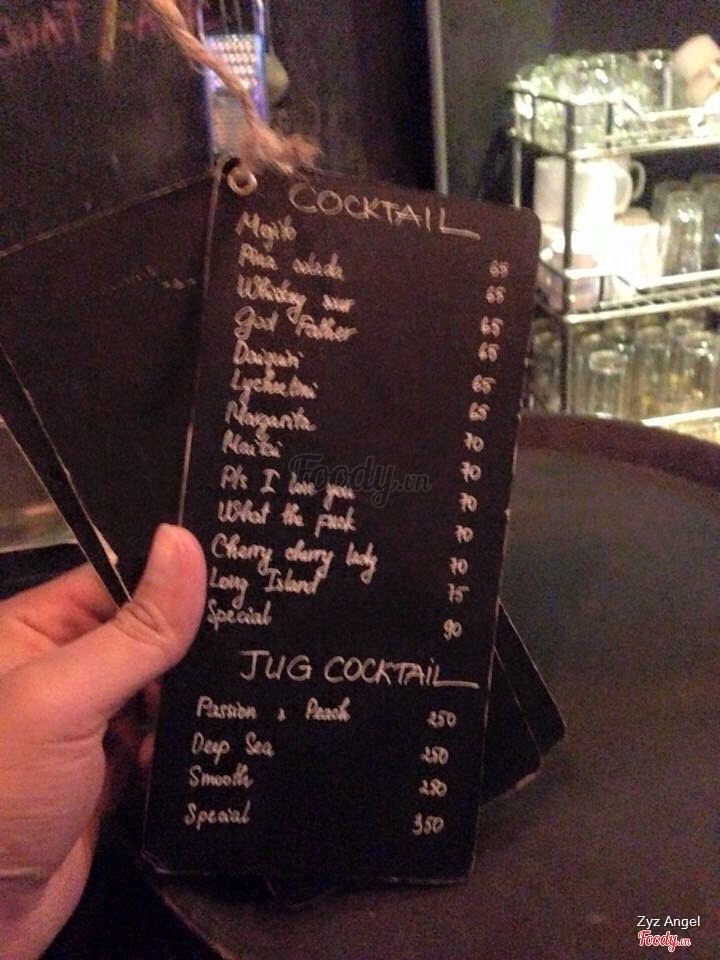 COCKTAIL
Mojito 65
Pina colada 65
Whiskey sour 65
God Father 65
Daiquiri 65
Lycheetini 65
Margarita 70
Maitai 70
P/s I love you 70
What the fuck 70
Cherry cherry lady 70
Long Island 75
Special 90
JUG COCKTAIL
Passion & Peach 250
Deep Sea 250
Smooth 280
Special 350
Foody.vn
Zyz Angel
Foody.vn